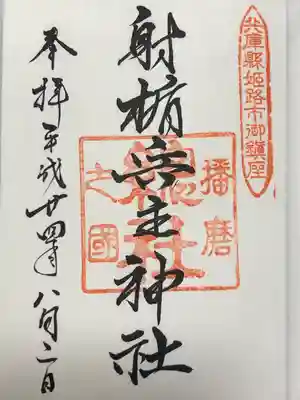 兵庫縣姫路市御鎮座
射楯兵主神社
播磨
總社
之國
奉拝 平成廿四年八月二日